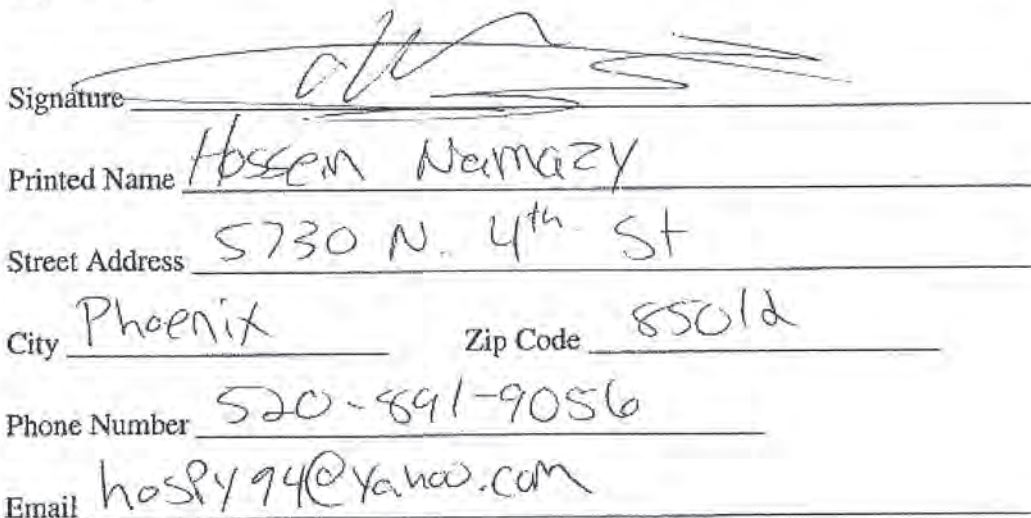 Signature
Printed Name Hossen Namazy
Street Address 5730 N. 4th St
City Phoenix Zip Code 85012
Phone Number 520-891-9056
Email hospy94@yahoo.com